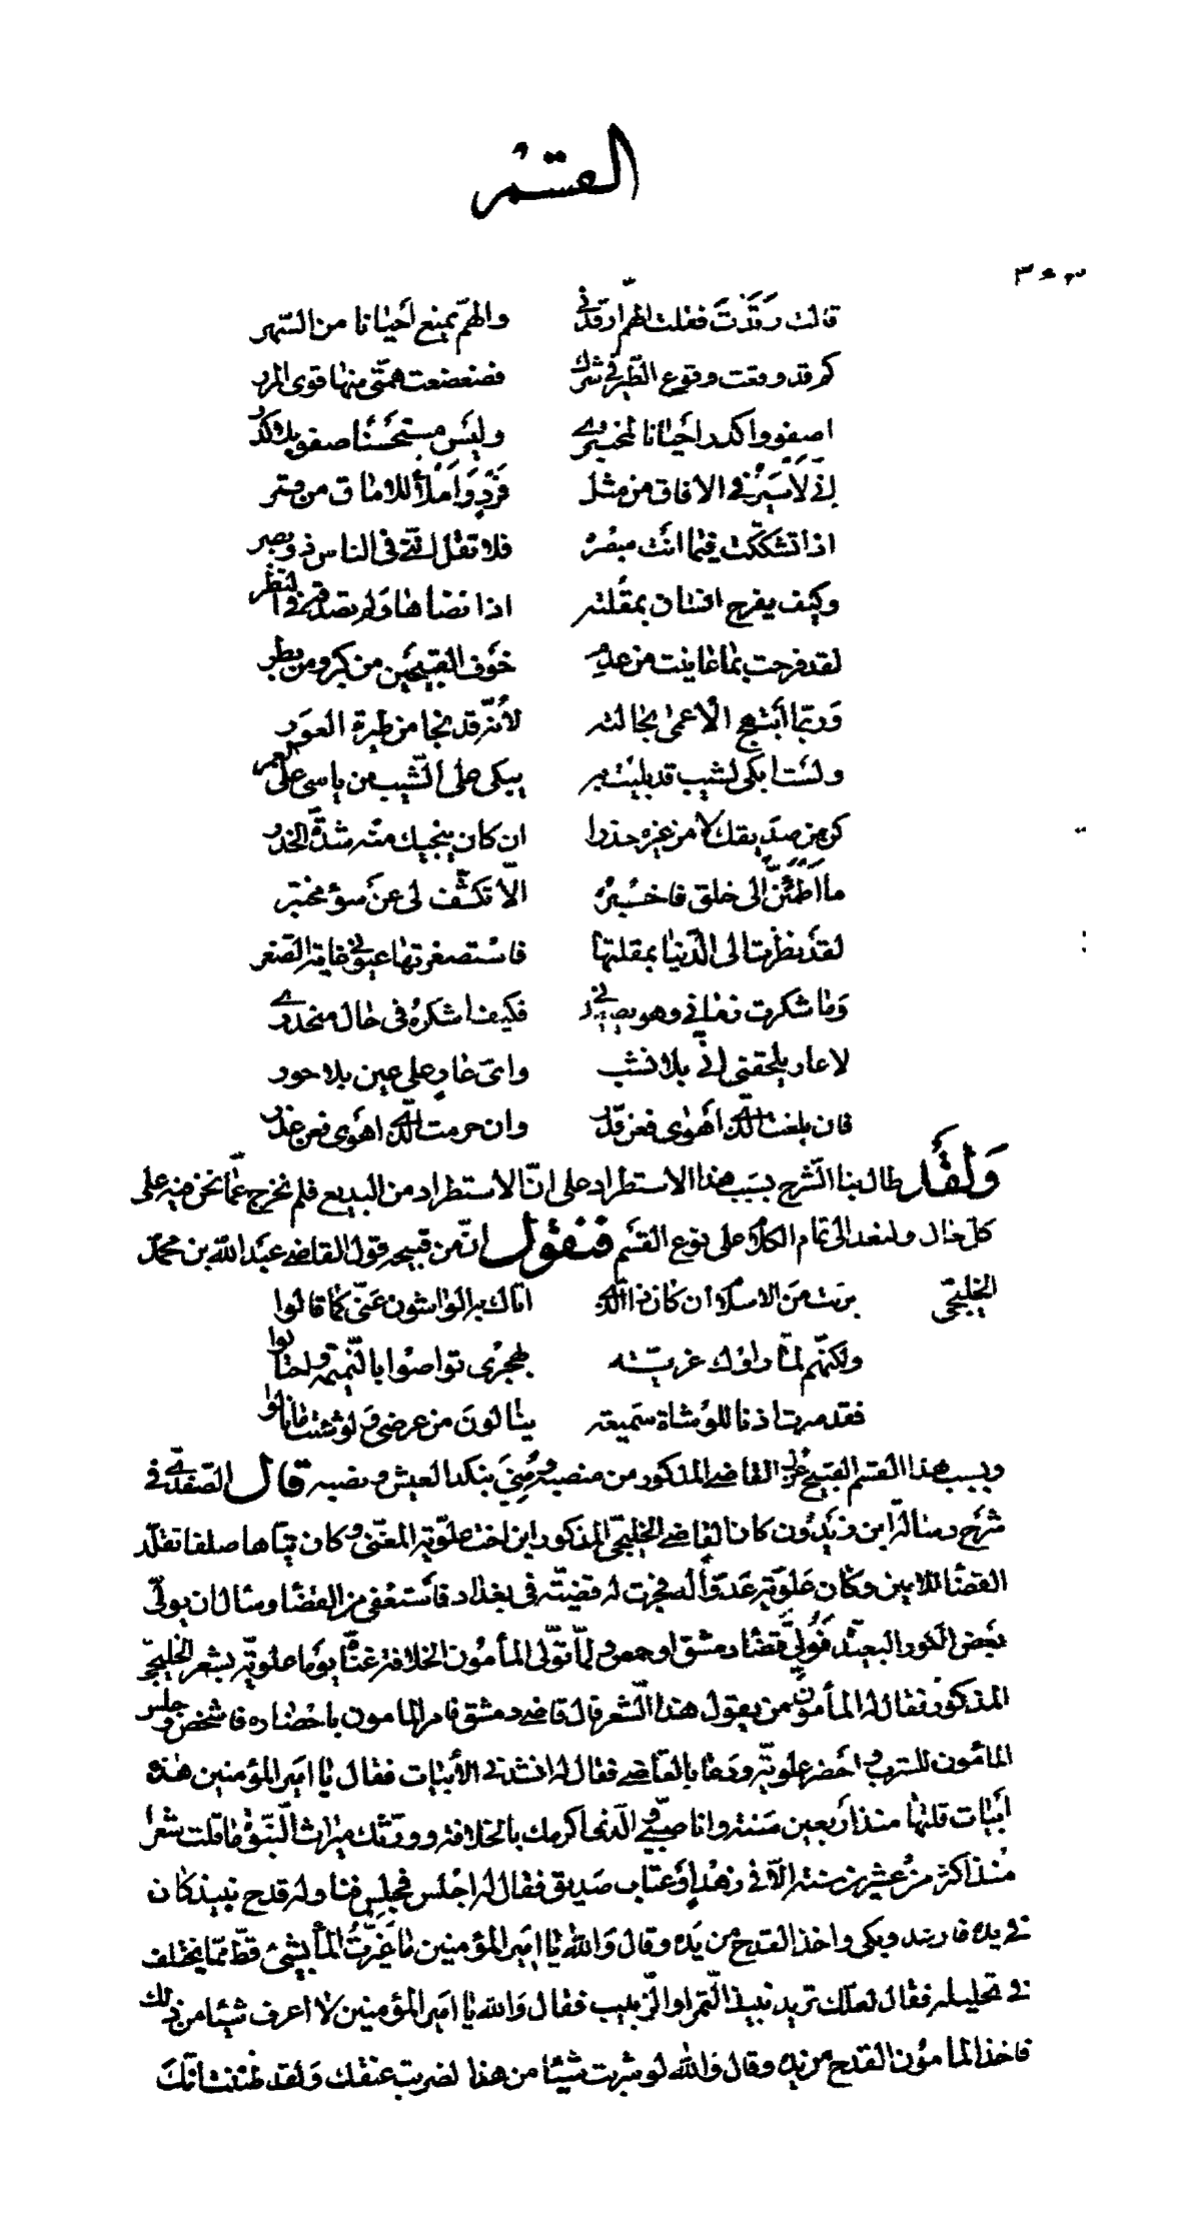 القسم
٣٤٣
قالت رقدت فقلت الهمّ ارقدني والهمّ يمنع أحيانا من السّهر
كم قد وقعت وقوع الطّير في شرك فضعضعت همّتي منها قوى المرر
اصفو واكدر احيانا لمختبري وليس مستحسنا صفو بلا كدر
إنّي لأسير في الافاق من مثل فردٍ وأملأ للاماق من قمر
اذا تشككت فيما انت مبصره فلا تقل انّني في الناس ذو بصر
وكيف يفرح انسان بمقلته اذا نضاها ولم تصدقه في النّظر
لقد فرحت بما عاينت من عدم خوف القبيحين من كبر ومن بطر
وربّما أبتهج الأعمى بحالته لأنّه قد نجا من طيرة العور
ولست ابكي لشيب قد بليت به يبكي على الشّيب من ياسى على العمر
كن من صديقك لا من غيره حذرا ان كان ينجيك منه شدّة الحذر
ما اطمئنّ الى خلق فاخبره الّا تكشّف لي عن سوء مختبر
لقد نظرت الى الدّنيا بمقلتها فاستصغرتها عيوني غاية الصّغر
وما شكرت زماني وهو يصعد بي فكيف اشكره في حال منحدري
لا عار يلحقني انّي بلا نشب واىّ عار على عين بلا حور
فان بلغت الّذي أهوى فعن قدر وان حرمت الّذي اهوى فعن عذر
ولقد طال بنا الشّرح بسبب هذا الاستطراد على انّ الاستطراد من البديع فلم نخرج عمّا نحن فيه على
كلّ حال ولنعد الى تمام الكلام على نوع القسم فنقول انّ من قبيحه قول القاضي عبد الله بن محمّد
الخليجي برئت من الاسلام أن كان ذا الّذي اتاك به الواشون عنّي كما قالوا
ولكنّهم لمّا رأوك غريّة بهجري تواصوا بالنّميمة واحتالوا
فقد صرت اذنا للوشاة سميعة ينالون من عرضي ولو شئت ما نالوا
وبسبب هذا القسم القبيح عزل القاضي المذكور من منصبه ومني بنكد العيش ونصبه قال الصّفديّ في
شرح رسالة ابن زيدون كان القاضي الخليجيّ المذكور ابن اخت علّويه المغنّي وكان تيّاها صلفا تقلّد
القضا للامين وكان علّويه عدوّا له فجرت له قضيّة في بغداد فاستعفى من القضا وسال ان يولّى
بعض الكور البعيدة فولّي قضا دمشق او حمص ولمّا تولّى المأمون الخلافة غنّاه يوما علّويه بشعر الخليجيّ
المذكور فقال له المأمون من يقول هذا الشّعر قال قاضي دمشق فامر المامون باحضاره فاشخص وجلس
المأمون للشرب واحضر علّويه ودعا بالقاضي فقال له انشدني الأبيات فقال يا امير المؤمنين هذه
أبيات قلتها منذ أربعين سنة وانا صبيّ والّذي اكرمك بالخلافة وورّثك ميراث النّبوّة ما قلت شعرا
منذ اكثر من عشرين سنة الّا في زهد او عتاب صديق فقال له اجلس فجلس فناوله قدح نبيذ كان
في يده فارتعد وبكى واخذ القدح من يده وقال والله يا امير المؤمنين ما غيّرت الماء بشيء قطّ ممّا يختلف
في تحليله فقال لعلّك تريد نبيذ التّمر او الزّبيب فقال والله يا امير المؤمنين لا اعرف شيئا من ذلك
فاخذ المامون القدح من يده وقال والله لو شربت شيئا من هذا لضربت عنقك ولقد ظننت انّك